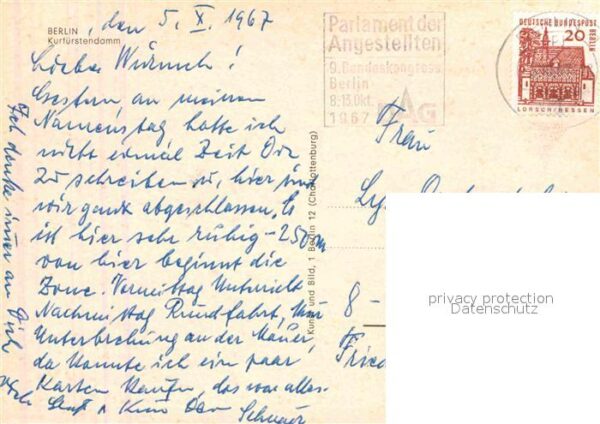 BERLIN
Kurfürstendamm
, den 5. X. 1967
Liebes Würmch!
Gestern an meinem
Namenstag hatte ich
nicht einmal Zeit Dir
zu schreiben, hier sind
wir ganz abgeschlossen. Es
ist hier sehr ruhig – 250 m
von hier beginnt die
Zone. Vormittag Unterricht
Nachmittag Rundfahrt, nur
Unterbrechung an der Mauer,
da konnte ich ein paar
Karten kaufen, das war alles.
Gruß u. Kuss Dein
Ich denke immer an Dich
Kunst und Bild, 1 Berlin 12 (Charlottenburg)
Parlament der
Angestellten
9. Bundeskongress
Berlin
8.-13.Okt.
1967 DAG
DEUTSCHE BUNDESPOST
BERLIN
20
LORSCH/HESSEN
Frau
8 -
Fried
privacy protection
Datenschutz